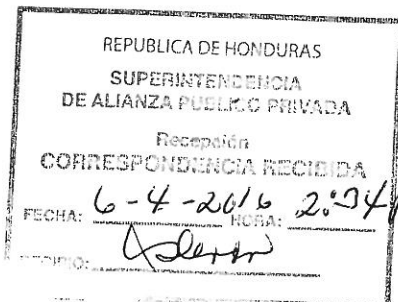 REPUBLICA DE HONDURAS
SUPERINTENDENCIA
DE ALIANZA PUBLICO PRIVADA
Recepción
CORRESPONDENCIA RECIBIDA
FECHA: 6-4-2016 HORA: 2:34